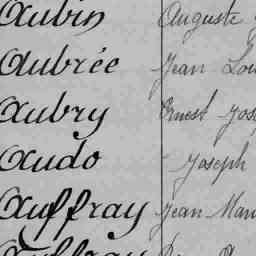 Aubin Auguste
Aubrée Jean
Aubry Ernest
Audo Joseph
Auffray Jean
Auffray